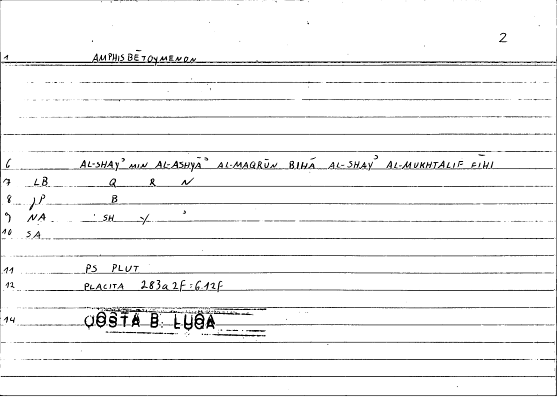 2
1 AMPHISBĒTOYMENON
6 AL-SHAYʾ MIN AL-ASHYĀʾ AL-MAQRŪN BIHĀ AL-SHAYʾ AL-MUKHTALIF FĪHI
7 LB Q R N
8 JP B
9 NA SH Y ʾ
10 SA
11 PS PLUT
12 PLACITA 283a2F:6.12F
14 QOSTĀ B. LUQA